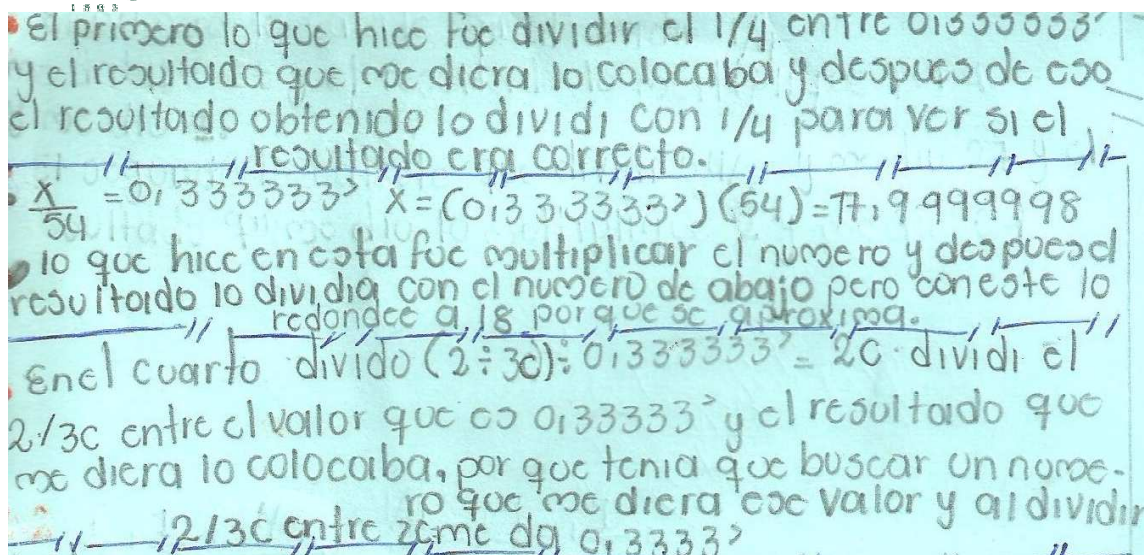 1893
•El primero lo que hice fue dividir el 1/4 entre 0,333333'
y el resultado que me diera lo colocaba y despues de eso
el resultado obtenido lo dividi con 1/4 para ver si el
resultado era correcto.
• x/54 = 0,333333' x=(0,333333')(54)=17,9999998
• lo que hice en esta fue multiplicar el numero y despues el
resultado lo dividia con el numero de abajo pero con este lo
redondee a 18 porque se aproxima.
• En el cuarto divido (2÷3c)÷0,333333'= 2c. dividi el
2/3c entre el valor que es 0,33333' y el resultado que
me diera lo colocaba, por que tenia que buscar un nume-
ro que me diera ese valor y al dividir
2/3c entre 2c me da 0,3333'